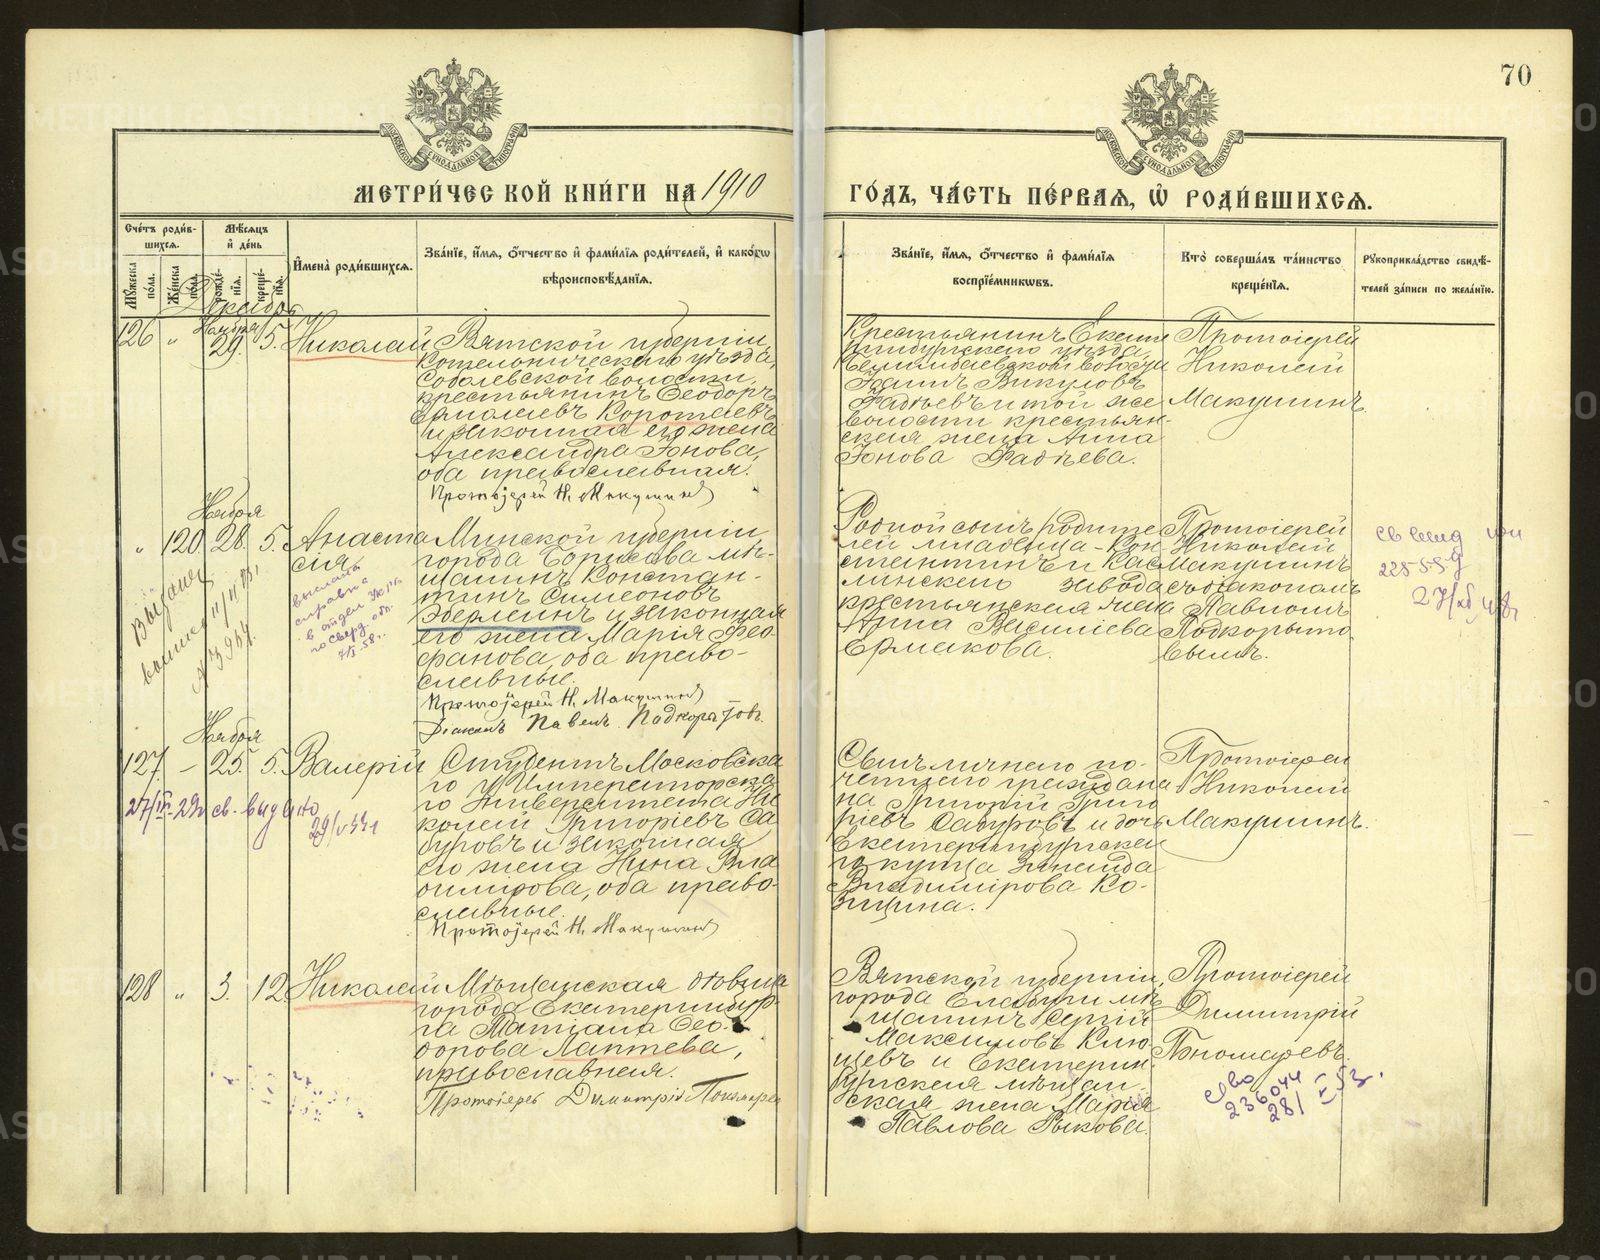 70
МЕТРИ́ЧЕСКОЙ КНИ́ГИ НА 1910
ГО́ДЪ, ЧА́СТЬ ПЕ́РВАѦ, Ѡ҆ РОДИ́ВШИХСѦ.
Сче́тъ роди́вшихсѧ.
Мѣ́сѧцъ и҆ де́нь
Му́жеска по́ла.
Же́нска по́ла.
рожде́нїѧ.
креще́нїѧ.
И҆мена̀ роди́вшихсѧ.
Зва́нїе, и҆́мѧ, ѻ҆́тчество и҆ фами́лїѧ роди́телей, и҆ како́гѡ
вѣроисповѣ́данїѧ.
Зва́нїе, и҆́мѧ, ѻ҆́тчество и҆ фами́лїѧ
воспрїе́мникѡвъ.
Кто̀ соверша́лъ та́инство
креще́нїѧ.
Рꙋкоприкла́дство свидѣ́-
телей за́писи по жела́нїю.
Декабрь
126 " Ноября 29. 5. Николай
Вятской губернiи,
Котельническаго уѣзда,
Соболевской волости,
крестьянинъ Ѳеодоръ
Ермолаевъ Коротаевъ
и законная его жена
Александра Іонова,
оба православная.
Протоіерей Н. Макушинъ
Крестьянинъ Екате-
ринбургскаго уѣзда
волости
Викуловъ
Фадѣевъ и той же
волости крестьян-
ская жена Анна
Іонова Фадѣева.
Протоіерей
Николай
Макушинъ.
Ноября
" 120 28. 5. Анаста-
сія
Минской губерніи,
города Борисова мѣ-
щанинъ Констан-
тинъ Симеоновъ
Эберлеинъ и законная
его жена Марія Ѳео-
фанова, оба право-
славные.
Протоіерей Н. Макушинъ
Діаконъ Павелъ Подкорытовъ.
Родной сынъ родите-
лей младенца - Кон-
стантинъ и Кас-
линскаго завода
крестьянская жена
Анна Василіева
Ермакова.
Протоіерей
Николай
Макушинъ
съ діакономъ
Павломъ
Подкорыто-
вымъ.
Выдана
выписка 11/II
N 3954.
выслана
справка
в отдел
по сверд. обл.
7/I-58г.
225559
Ноября
127. — 25. 5. Валерій
Студентъ Московска-
го Императорска-
го Университета Ни-
колай Григоріевъ Са-
буровъ и законная
его жена Нина Вла-
димірова, оба право-
славные.
Протоіерей Н. Макушинъ
Сынъ личнаго по-
четнаго гражданина
Григорій Григо-
ріевъ Сабуровъ и дочь
Екатеринбургска-
го купца Зинаида
Владимірова Ко-
зицина.
Протоіерей
Николай
Макушинъ.
128 " 3. 12. Николай
Мѣщанская дѣвица
города Екатеринбур-
га Татіана Ѳео-
дорова Лаптева,
православная.
Протоіерей Димитрій Пономаревъ
Вятской губерніи,
города Елабуги мѣ-
щанинъ Сергій
Максимовъ Клю-
шевъ и Екатерин-
бургская мѣщан-
ская жена Марія
Павлова Рыкова.
Протоіерей
Димитрій
Пономаревъ.
236044
METRIKI.GASO-URAL.RU